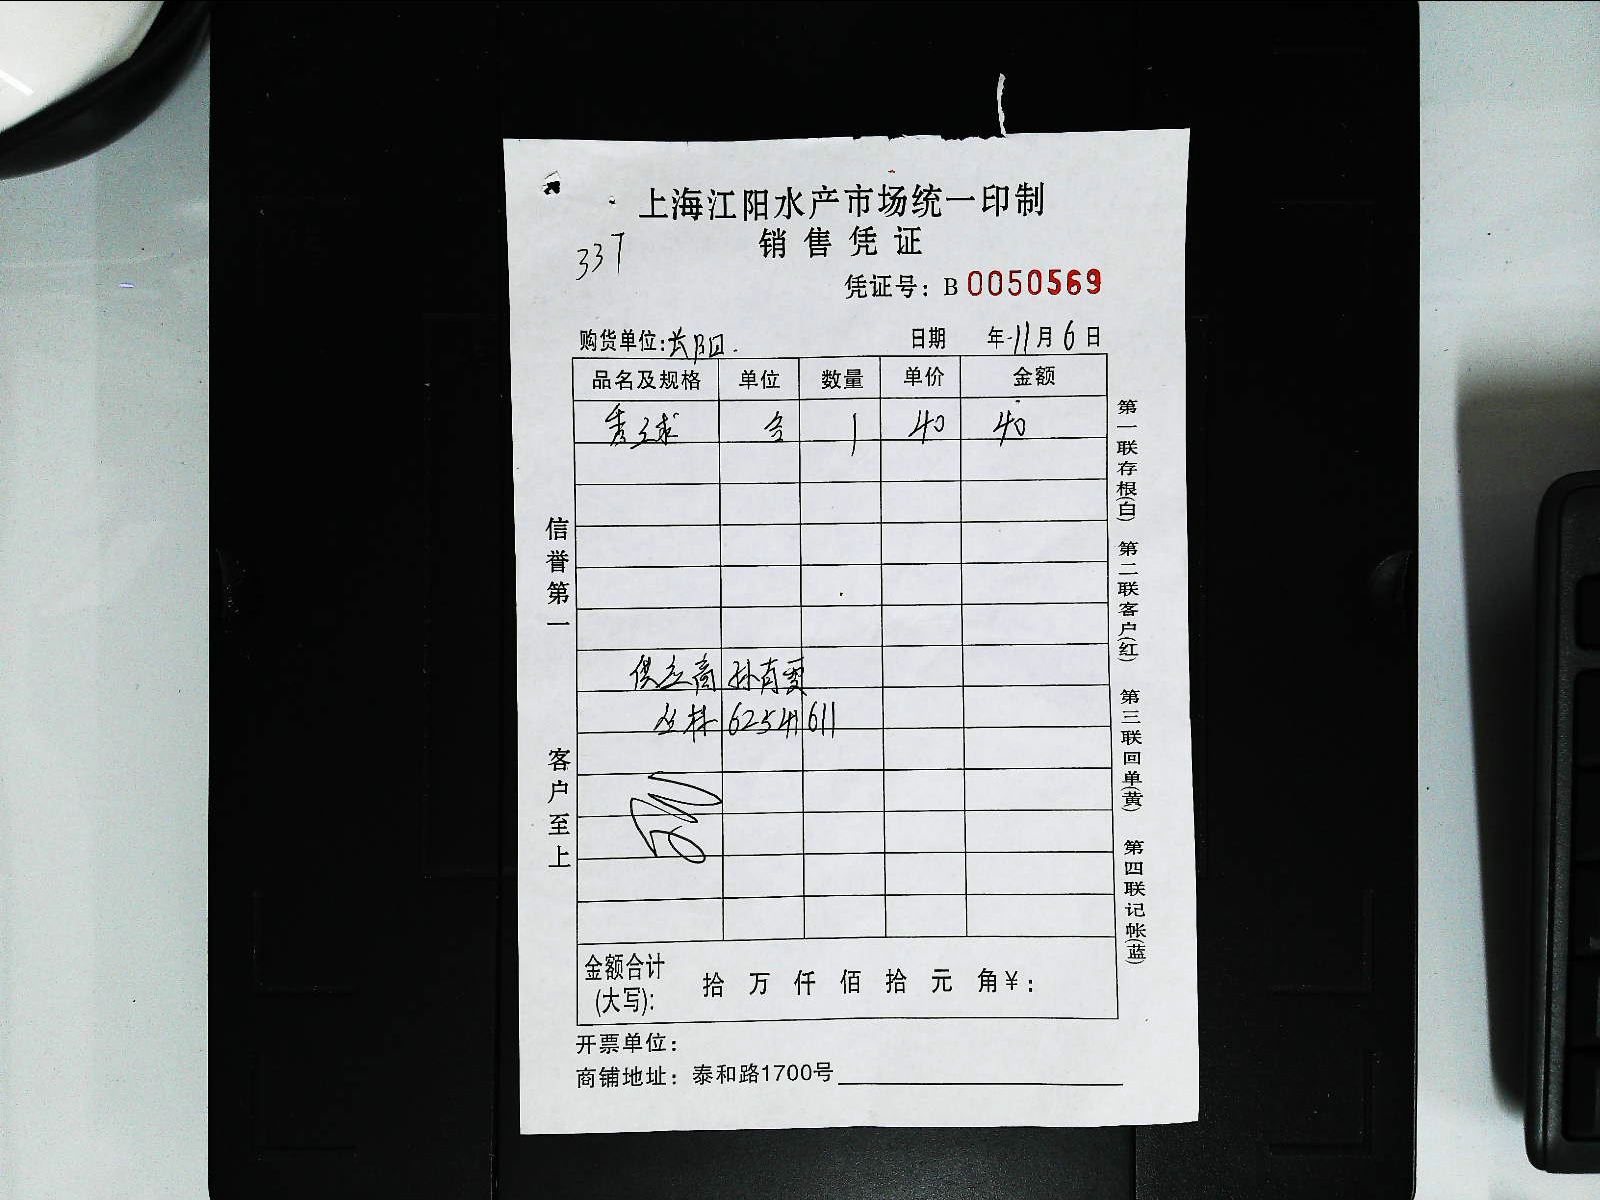 上海江阳水产市场统一印制
销售凭证
337
凭证号：B 0050569
购货单位:长阳. 日期 年 11月 6日
品名及规格 单位 数量 单价 金额
1 40 40
供应商 孙肖雯
丛林 62541611
金额合计(大写): 拾 万 仟 佰 拾 元 角 ¥:
开票单位:
商铺地址: 泰和路1700号
信誉第一 客户至上
第一联存根(白) 第二联客户(红) 第三联回单(黄) 第四联记帐(蓝)